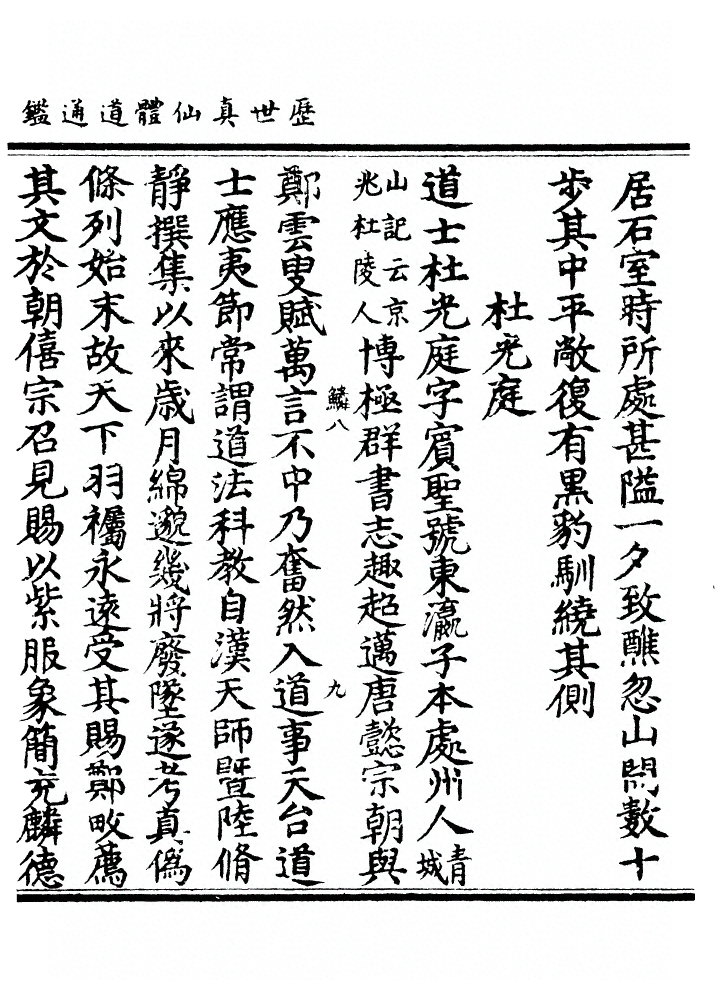 歷世真仙體道通鑑
居石室時所處甚隘一夕致醮忽山開數十
步其中平敞復有黑豹馴繞其側
杜光庭
道士杜光庭字賓聖號東瀛子本處州人青城
山記云京兆杜陵人博極群書志趣超邁唐懿宗朝與
鄭雲叟賦萬言不中乃奮然入道事天台道
士應夷節常謂道法科教自漢天師暨陸脩
靜撰集以來歲月綿邈幾將廢墜遂考真僞
條列始末故天下羽襬永遠受其賜鄭畋薦
其文於朝僖宗召見賜以紫服象簡充麟德
鱗八
九